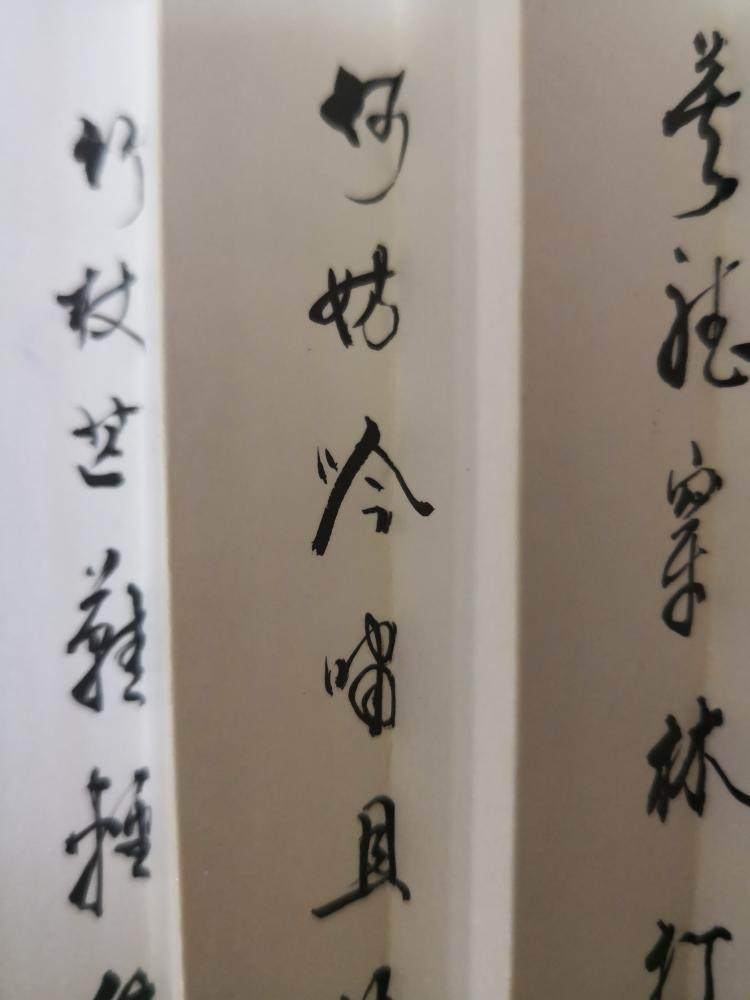 莫聽穿林打
何妨吟嘯且
竹杖芒鞋輕